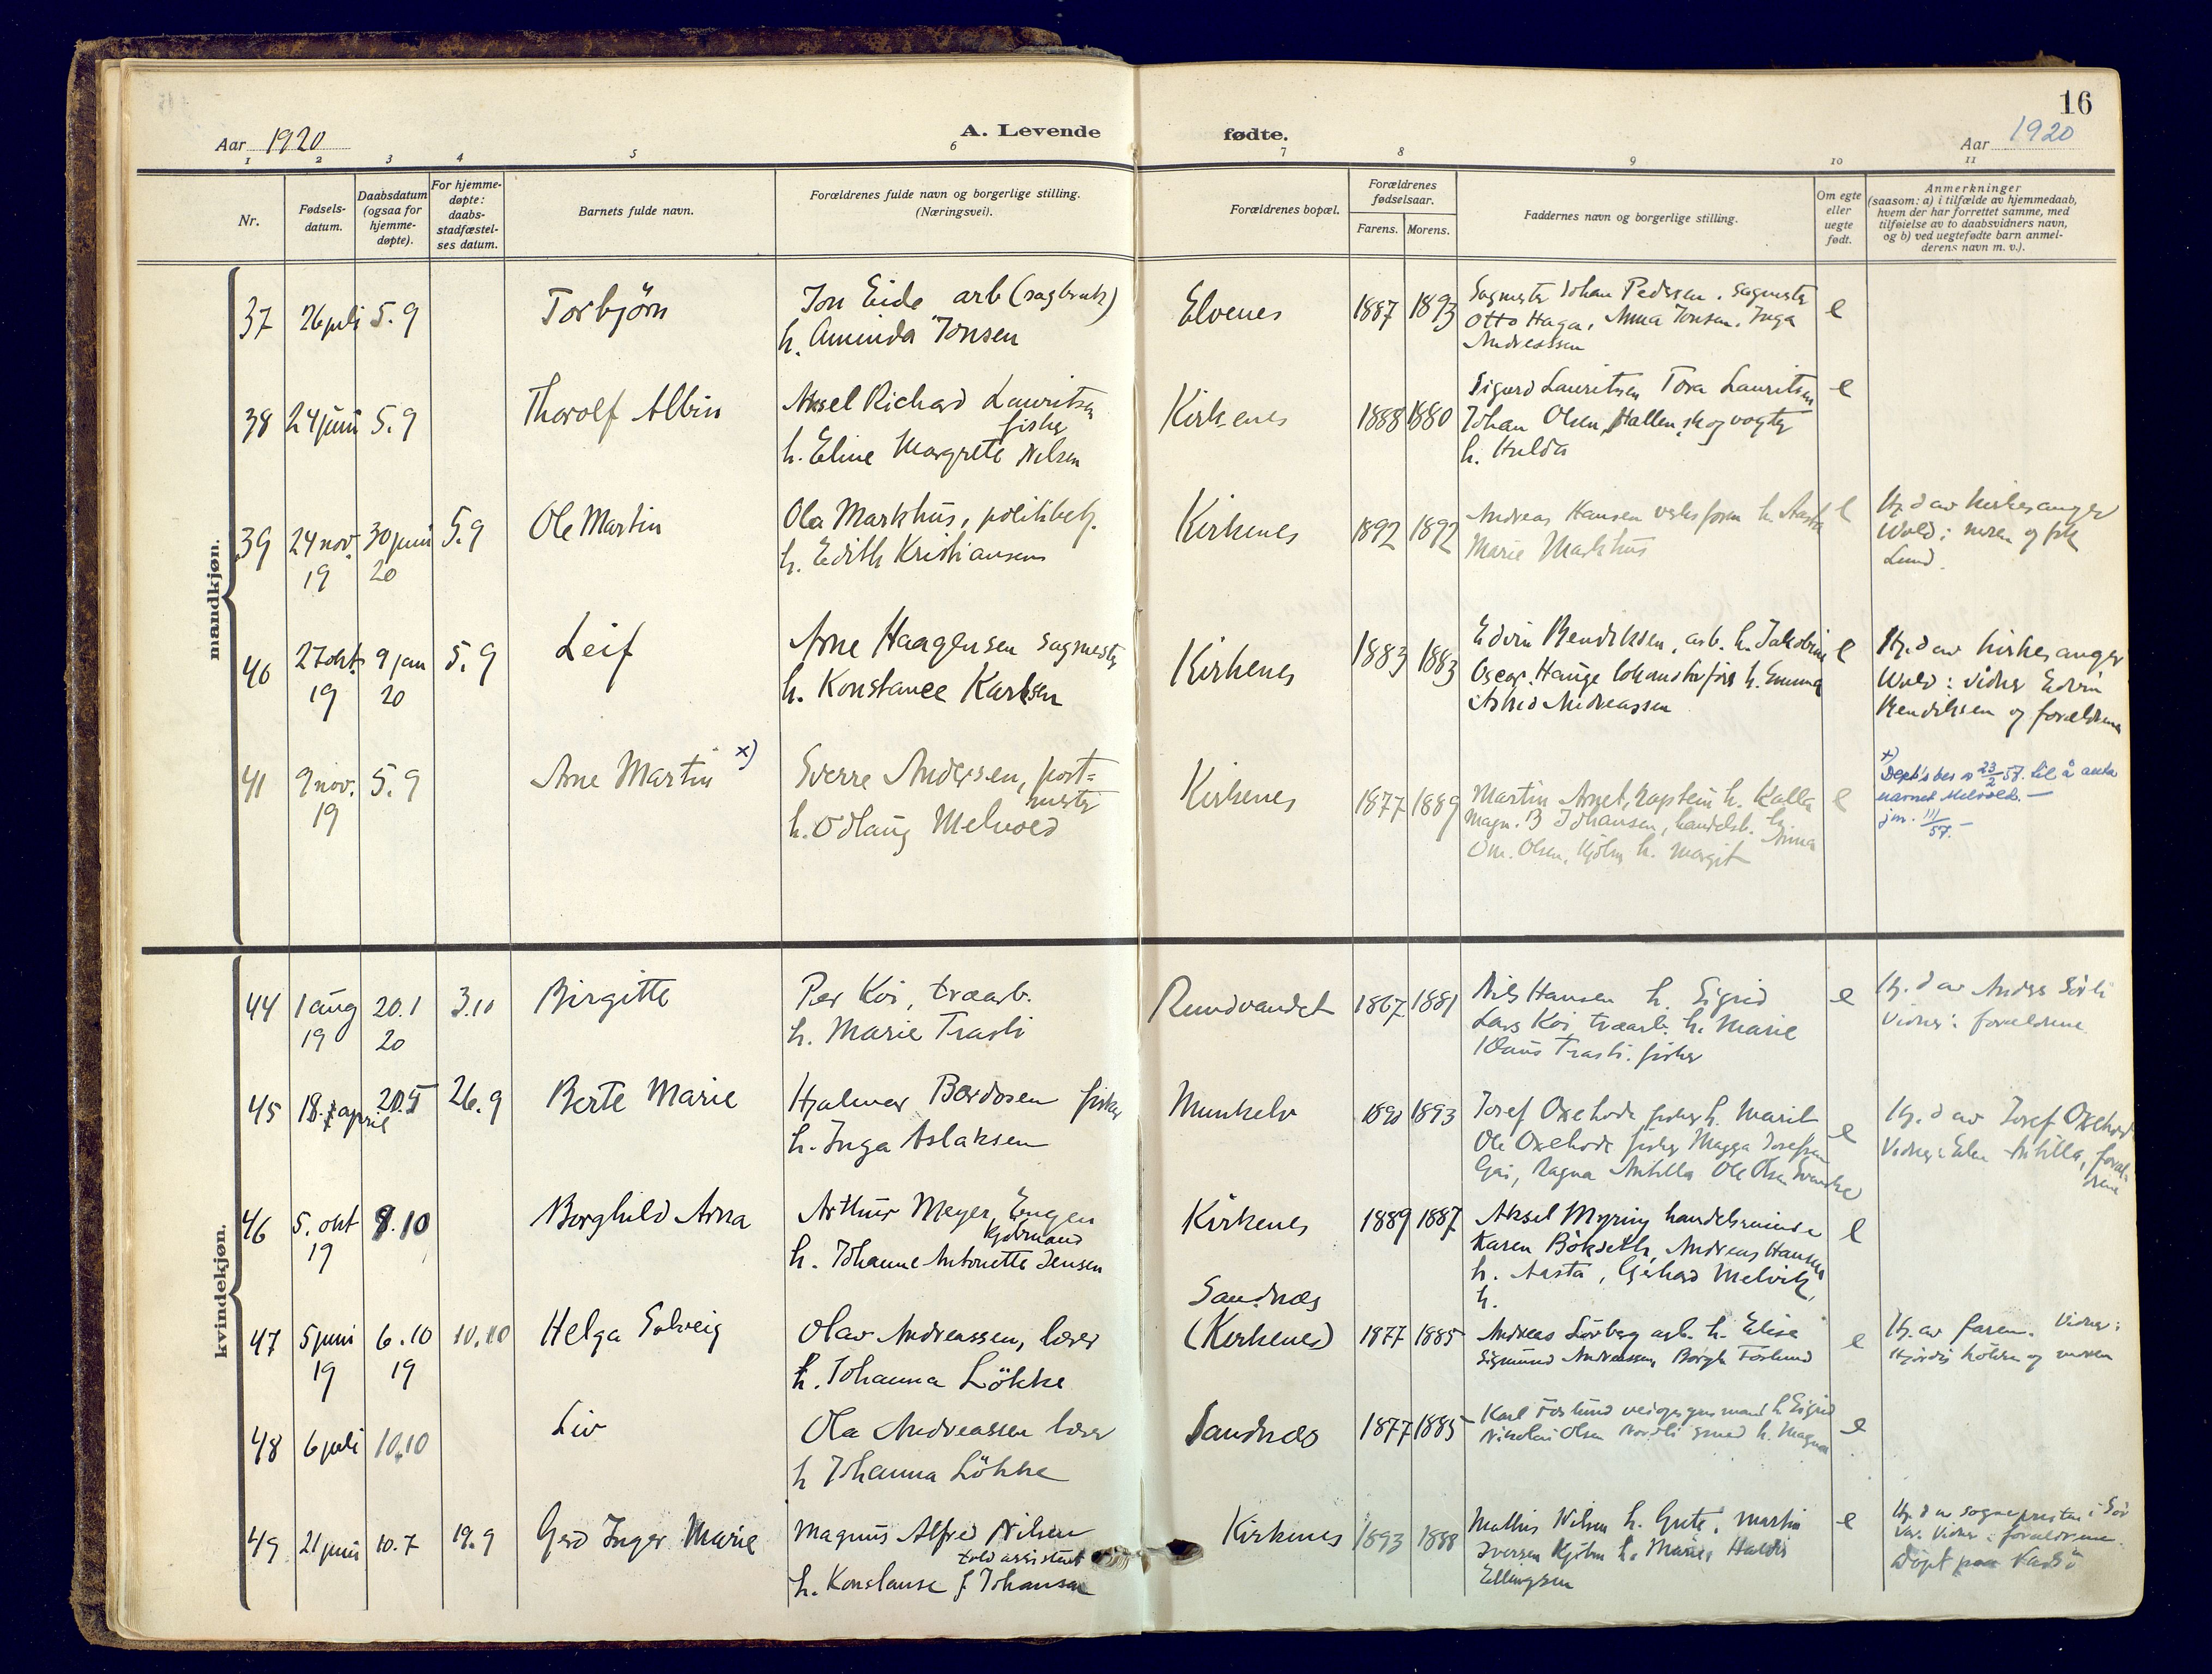 16
Aar 1920
A. Levende
fødte.
Aar 1920
1 2 3 4 5 6 7 8 9 10 11
Nr.
Fødsels-
datum.
Daabsdatum
(ogsaa for
hjemme-
døpte).
For hjemme-
døpte:
daabs-
stadfæstel-
ses datum.
Barnets fulde navn.
Forældrenes fulde navn og borgerlige stilling.
(Næringsvei).
Forældrenes bopæl.
Forældrenes
fødselsaar.
Farens. Morens.
Faddernes navn og borgerlige stilling.
Om egte
eller
uegte
født.
Anmerkninger
(saasom: a) i tilfælde av hjemmedaab,
hvem der har forrettet samme, med
tilføielse av to daabsvidners navn,
og b) ved uegtefødte barn anmel-
derens navn m. v.).
mandkjøn.
37 26 juli 5.9 Torbjörn
Jon Eide arb (sagbruk)
h. Aminda Jonsen
Elvenes 1887 1893
Sagmester Johan Pedersen. sagmester
Otto Haga, Anna Jonsen. Inga
Andreassen
e
38 24 juni 5.9 Thorolf Albin
Aksel Richard Lauritsen
fisker
h. Eline Margrete Nilsen
Kirkenes 1888 1880
Sigurd Lauritsen Tora Lauritsen
Johan Olsen Hallen, skogvogter
h. Hulda
e
39 24 nov. 19 30 juni 20 5.9 Ole Martin
Ola Markhus, politibetj.
h. Edith Kristiansen
Kirkenes 1892 1892
Andreas Hansen verksform h. Aasta
Marie Markhus
e
Hj. d av kirkesanger
Wold: moren og frk
Lund.
40 27 okt. 19 9 jan 20 5.9 Leif
Arne Haagensen sagmester
h. Konstance Karlsen
Kirkenes 1883 1883
Edvin Bendiksen, arb. h. Jakobine
Oscar Hauge lokomotivförer h. Emma
Astrid Andreassen
e
Hj. d av kirkesanger
Wold: vidner Edvin
Bendiksen og forældrene
41 9 nov. 19 5.9 Arne Martin x)
Sverre Andersen, post=
mester
h. Odlaug Melvold
Kirkenes 1877 1889
Martin Arnet, kaptein h. Kalla
Magn. B Johansen, handelsb. h. Anna
Om. Olsen, kjöbm h. Margit
e
x)
Dept's bev. 23/2 57. til å anta
navnet Melvold. —
jnr. 111/57. —
kvindekjøn.
44 1 aug 19 20.1 20 3.10 Birgitte
Per Koi, træarb.
h. Marie Trasti
Rundvandet 1867 1881
Nils Hansen h. Sigrid
Lars Koi træarb. h. Marie
Klaus Trasti. fisker
e
Hj. d av Anders
Vidner: forældrene
45 18. april 20.5 26.9 Berte Marie
Hjalmar Bordosen fisker
h. Inga Aslaksen
Munkelv 1890 1893
Josef Oxehode fisker h. Marit
Ole Oxehode fisker Magga Josefsen
Ragna Antilla Ole Olsen
e
Hj. d av Josef Oxehode
Vidner: Antilla, foræld-
rene
46 5. okt 19 8.10 Borghild Arna
Arthur Meyer Engen
kjöbmand
h. Johanne Antonette Jensen
Kirkenes 1889 1887
Aksel Myring handelsreisende
Karen Bökseth, Andreas Hansen
h. Aasta, Gerhard Melvik,
h.
e
47 5 juni 19 6.10 19 10.10 Helga Solveig
Olav Andreassen, lærer
h. Johanna Lökke
Sandnæs
(Kirkenes) 1877 1885
Andreas Sörberg arb. h. Elise
Sigmund Andreassen Borgh. Forlund
e
Hj. av faren. Vidner:
Hjördis og moren
48 6 juli 10.10 Liv
Ola Andreassen lærer
h Johanna Lökke
Sandnæs 1877 1885
Karl Forlund h. Sigrid
Nikolai Olsen Nordli smed h. Magna
e
49 21 juni 10.7 19.9 Gerd Inger Marie
Magnus Alfred Nilsen
toldassistent
h. Konstanse J Johansen
Kirkenes 1893 1888
Mathis Nilsen h. Grete, Martin
Iversen kjöbm h. Marie, Haldis
Ellingsen
e
Hj. d av sogneprestens i Sör
Var. Vidner: forældrene.
Döpt paa Vadsö